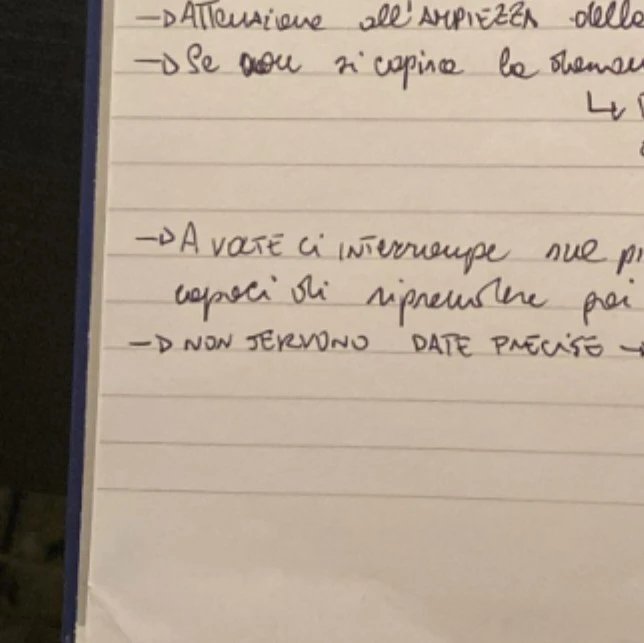 → Attenzione all'AMPIEZZA delle
→ Se non si capisce la
↳
→ A VOLTE ci INTerrompe sul
capaci di riprendere poi
→ NON SERVONO DATE PRECISE →